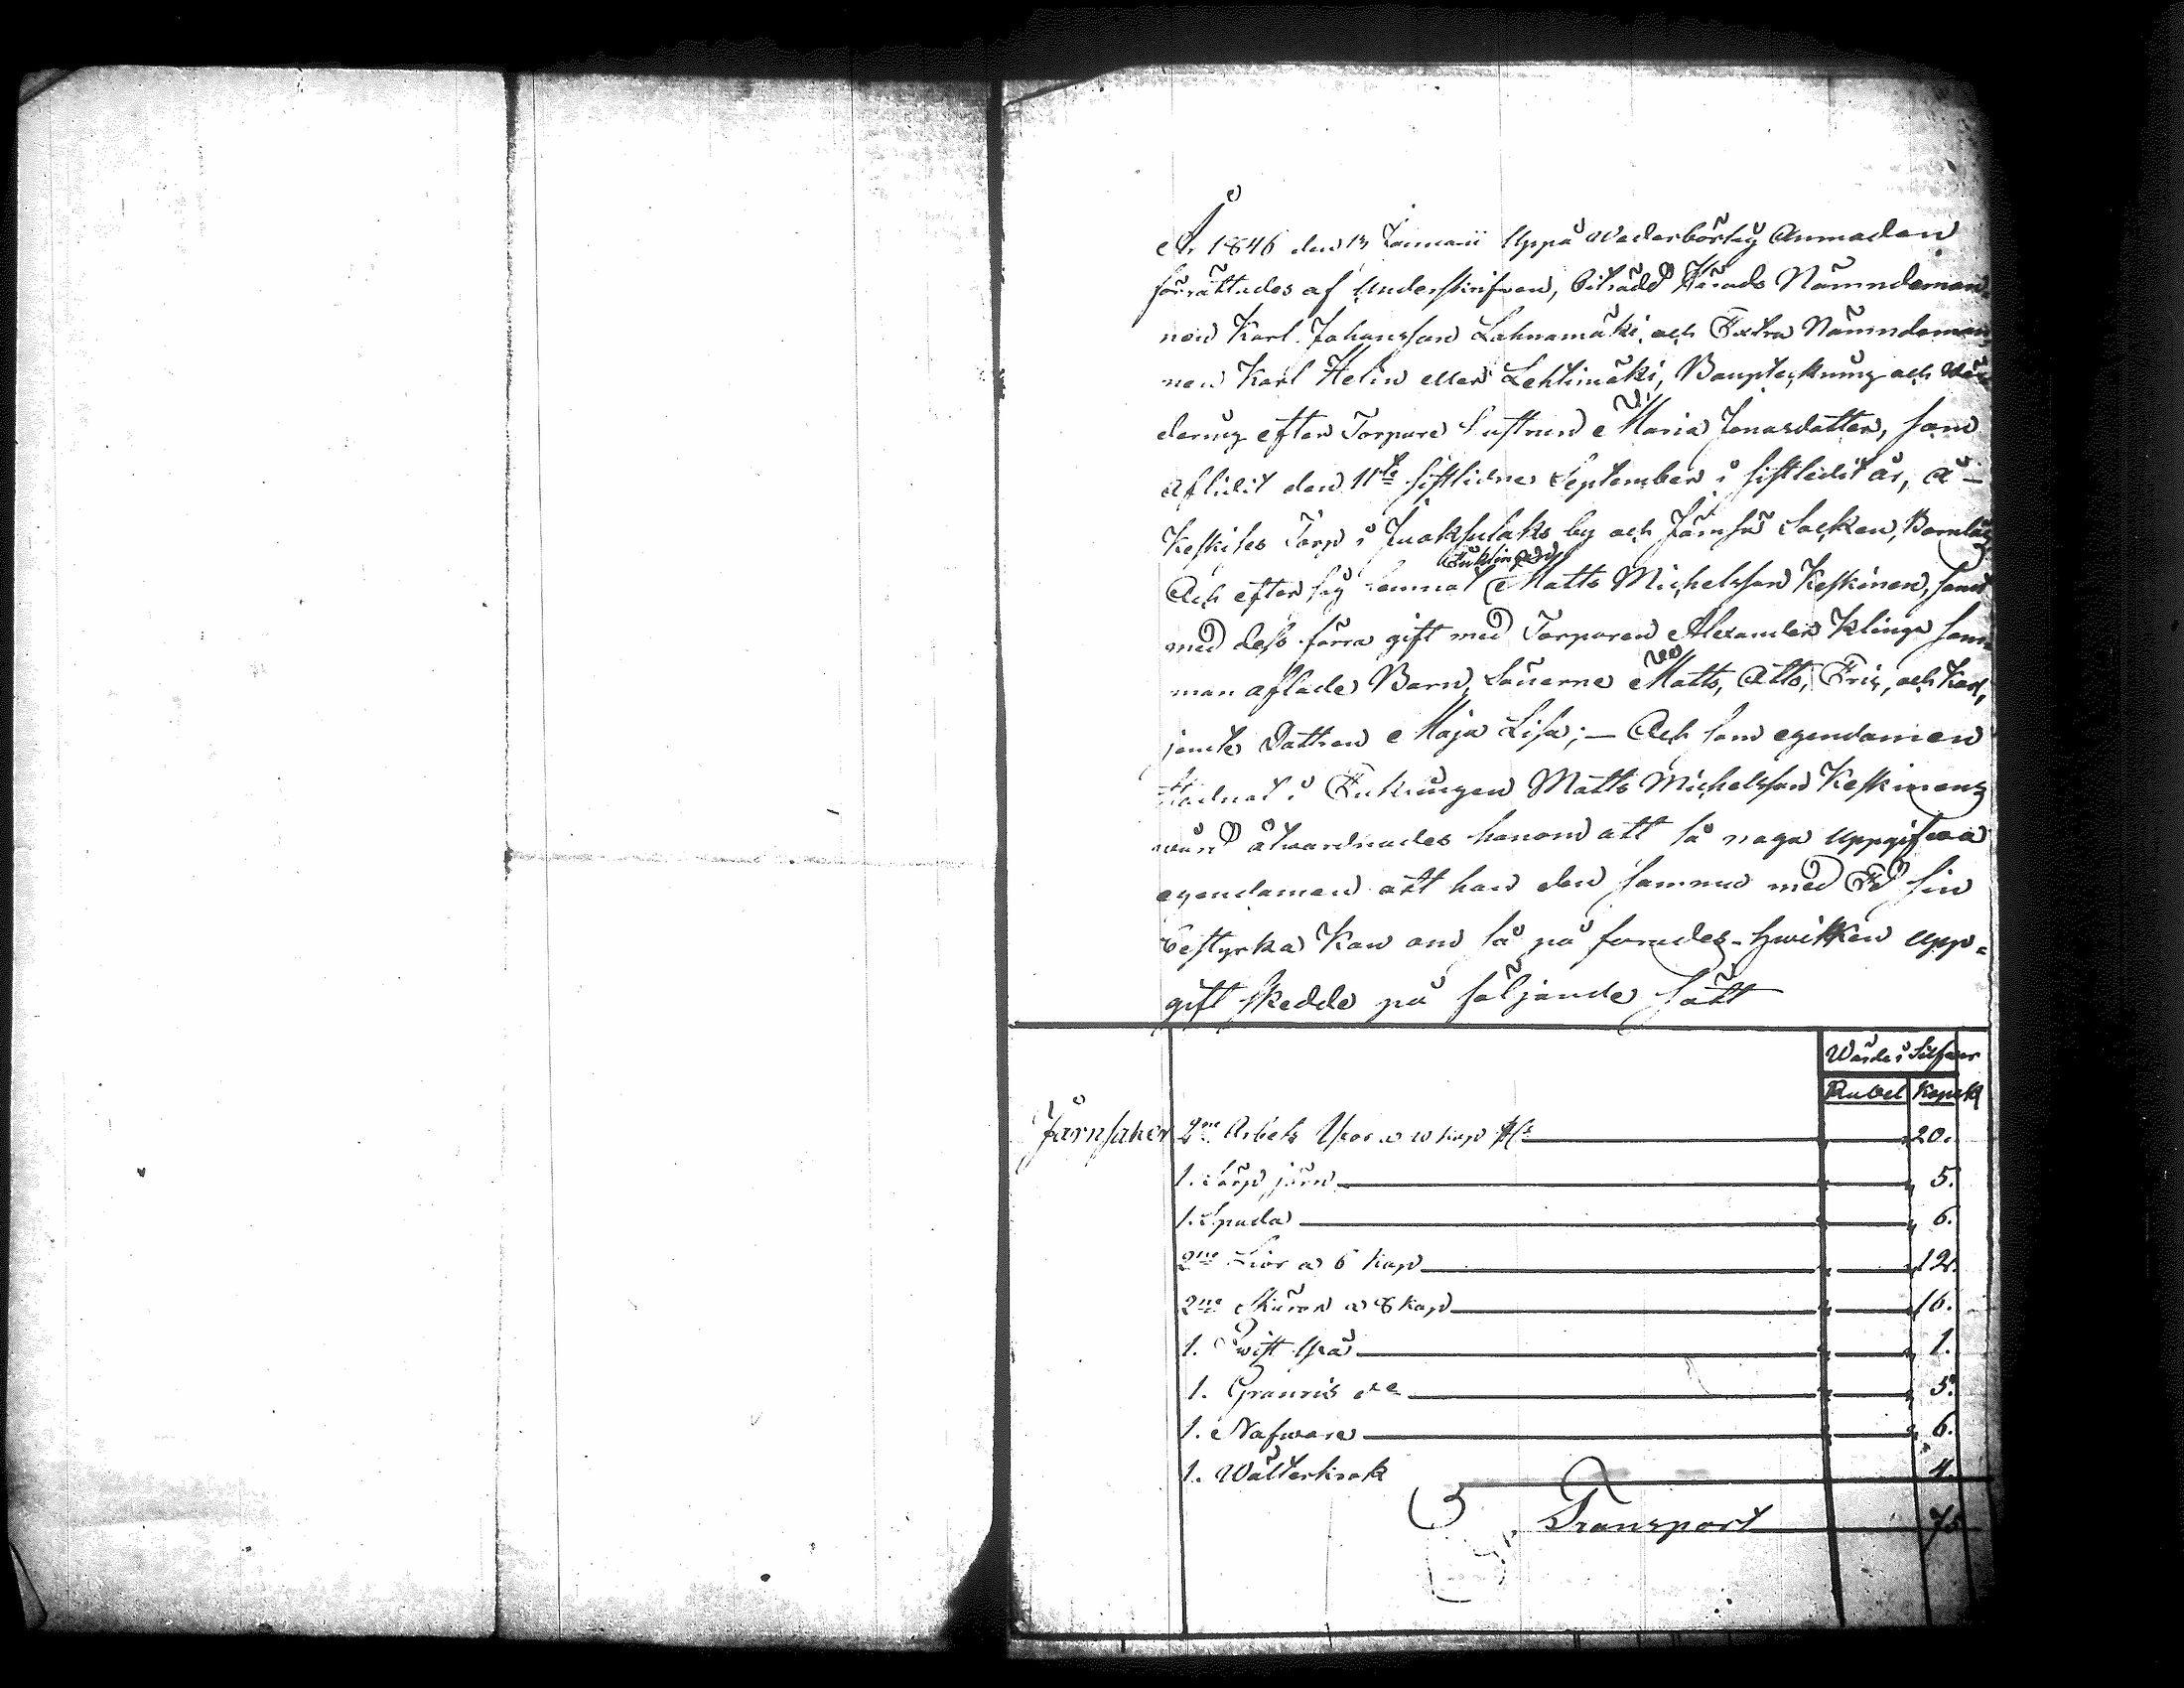 År 1846 den 13 Januarii Uppå Wederbörlig Anmodan
förrättades af Underskrifven, biträdd Härads Nämndeman
nen Karl Johansson Lahnamäki, och Extra Nämndeman
nen Karl Helin eller Lehtimäki, Boupteckning och Wär
dering efter Torpare Hustrun Maria Jonasdotter, som
aflidit den 11te sistlidne September i sistledit år, å
Keskises Torp i Juoksulaks by och Jämsä Socken,
Enklingen
Och efter sig lemnat Matts Michelsson Keskinen, samt
med dess förra gift med Torparen Alexander Klinga sam
man aflade Barn, Sönerne Matts, Otto, Friz, och Karl,
jemte Dottren Maja Lisa; — Och som egendomen
i Enklingen Matts Michelsson Keskinens
wård åtwarnades honom att så noga Uppgifwa
egendomen att han den samma med Ed sin
bestyrka Kan om så på fordras - hwilken Upp=
gift skedde på följande sätt
Wärde i Silfwer
Rubel Kopek
Järnsaker 2ne Arbets Yxor a 10 kop 20.
1. järn 5.
1. Spada 6.
2ne Liar a 6 kop 12.
2ne Skäror a 8 kop 16.
1. 1.
1. Granris 5.
1. Nafware 6.
1. 4.
Transport 75